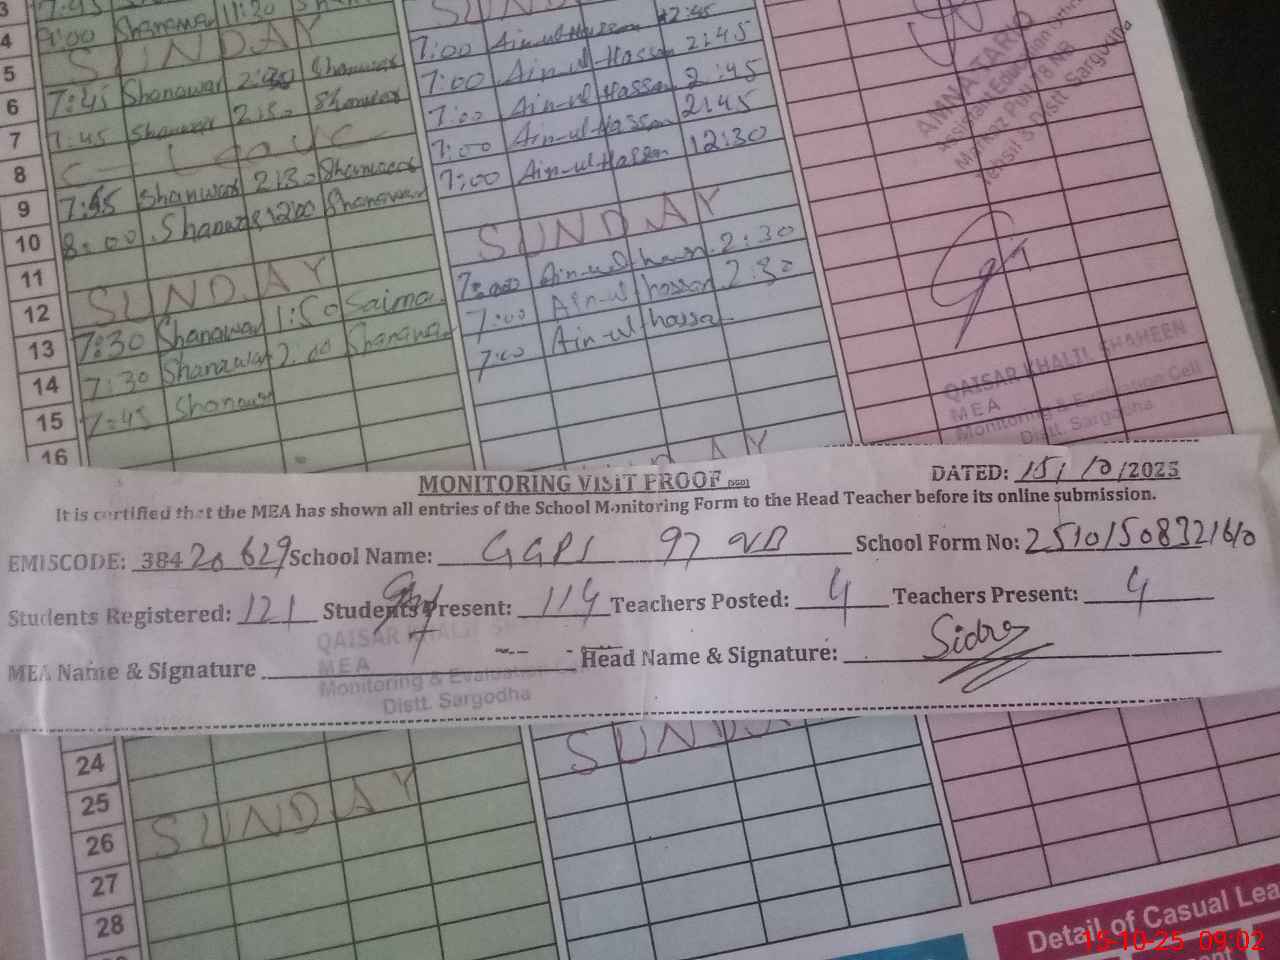 3 7:45 11:30
4 9:00 Shanawar 12:45
SUNDAY 7:00 Ain-ul-Hassan 2:45
5 7:45 Shanawar 2:30 Shanawar 7:00 Ain-ul-Hassan 2:45
6 7:45 Shanawar 2:30 Shanawar 7:00 Ain-ul-Hassan 2:45
7 C - Leave 7:00 Ain-ul-Hassan 2:45
8 7:45 Shanawar 2:30 Shanawar 7:00 Ain-ul-Hassan 12:30
9 8:00 Shanawar 12:00 Shanawar
10 SUNDAY
11 SUNDAY Ain-ul-hassan 2:30
12 7:30 Shanawar 1:50 Saima 7:00 Ain-ul hassan 2:30
13 7:30 Shanawar 2:00 Shanawar 7:00 Ain-ul hassan
14 7:45 Shanawar
15
16
AIMNA TARIQ
Assistant Education Officer
Distt Sargodha
QAISAR KHALIL SHAHEEN
MEA
Monitoring & Evaluation Cell
Distt. Sargodha
MONITORING VISIT PROOF DATED: 15/10/2025
It is certified that the MEA has shown all entries of the School Monitoring Form to the Head Teacher before its online submission.
EMISCODE: 38420629 School Name: GGPS 97 NB School Form No: 2510150832160
Students Registered: 121 Students Present: 114 Teachers Posted: 4 Teachers Present: 4
MEA Name & Signature Head Name & Signature: Sidra
QAISAR KHALIL
MEA
Monitoring & Evaluation
Distt. Sargodha
24 SUNDAY
25
26 SUNDAY
27
28
Detail of Casual Lea
15-10-25 09:02